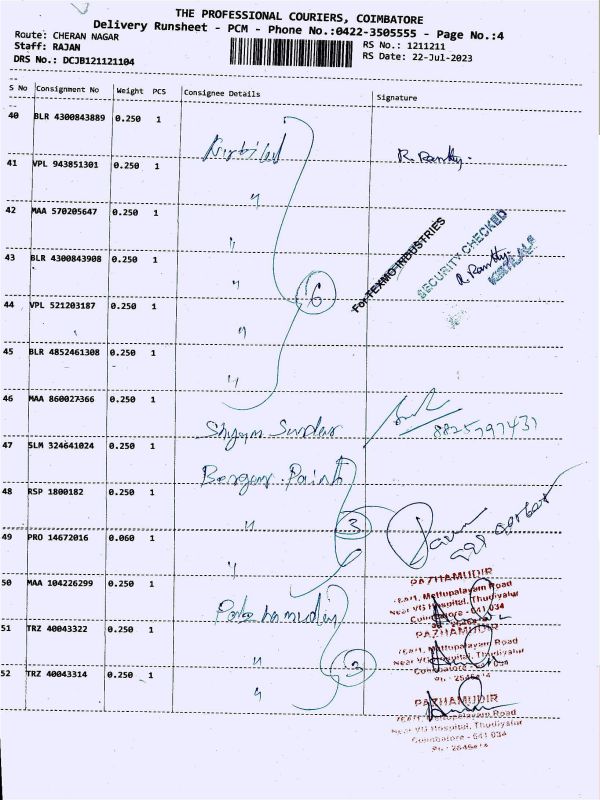 THE PROFESSIONAL COURIERS, COIMBATORE
Delivery Runsheet - PCM - Phone No.:0422-3505555 - Page No.:4
Route: CHERAN NAGAR
RS No.: 1211211
Staff: RAJAN
RS Date: 22-Jul-2023
DRS No.: DCJB121121104
S No Consignment No Weight PCS Consignee Details Signature
40 BLR 4300843889 0.250 1
R. Ranthy.
41 VPL 943851301 0.250 1 "
42 MAA 570205647 0.250 1 "
43 BLR 4300843908 0.250 1 "
For TEXMO INDUSTRIES
SECURITY CHECKED
6
44 VPL 521203187 0.250 1 "
45 BLR 4852461308 0.250 1 "
46 MAA 860027366 0.250 1 Shyam Sundar
8825797431
47 SLM 324641024 0.250 1 Berger Paints
48 RSP 1800182 0.250 1 "
3
49 PRO 14672016 0.060 1 "
50 MAA 104226299 0.250 1
51 TRZ 40043322 0.250 1 "
3
52 TRZ 40043314 0.250 1 "
PAZHAMUDIR
Mettupalayam Road
Near VG Hospital, Thudiyalur
Coimbatore - 641 034
PAZHAMUDIR
Mettupalayam Road
Near VG Hospital, Thudiyalur
Coimbatore - 641 034
PAZHAMUDIR
Mettupalayam Road
Near VG Hospital, Thudiyalur
Coimbatore - 641 034